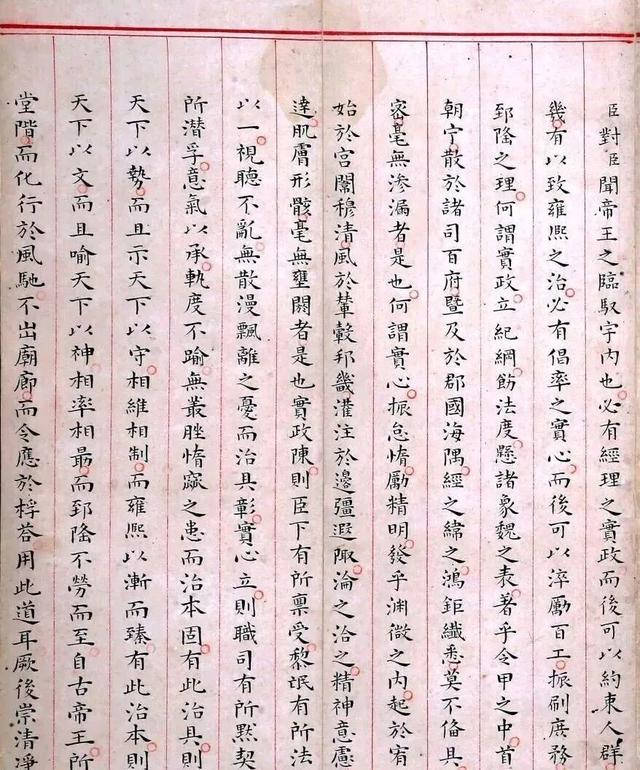 臣對臣聞帝王之臨馭宇内也必有經理之實政而後可以約束人群
幾有以致雍熙之治必有倡率之實心而後可以淬勵百工振刷庶務
郅隆之理何謂實政立紀綱飭法度懸諸象魏之表著乎令甲之中首
朝宁散於諸司百府暨及於郡國海隅經之緯之鴻鉅纖悉莫不偹具
宻毫無滲漏者是也何謂實心振怠惰勵精明發乎渊微之内起於宥
始於宫闈穆清風於輦轂邦畿灌注於邊疆遐陬淪之洽之精神意慮
達肌膚形骸毫無壅閼者是也實政陳則臣下有所禀受黎氓有所法
以一視聽不亂無散漫飄離之憂而治具彰實心立則職司有所默契
所潜孚意氣以承軌度不踰無叢脞惰窳之患而治本固有此治具則
天下以勢而且示天下以守相維相制而雍熙以漸而臻有此治本則
天下以文而且喻天下以神相率相最而郅隆不勞而至自古帝王所
堂階而化行於風馳不出廟廊而令應於桴荅用此道耳厥後崇清淨